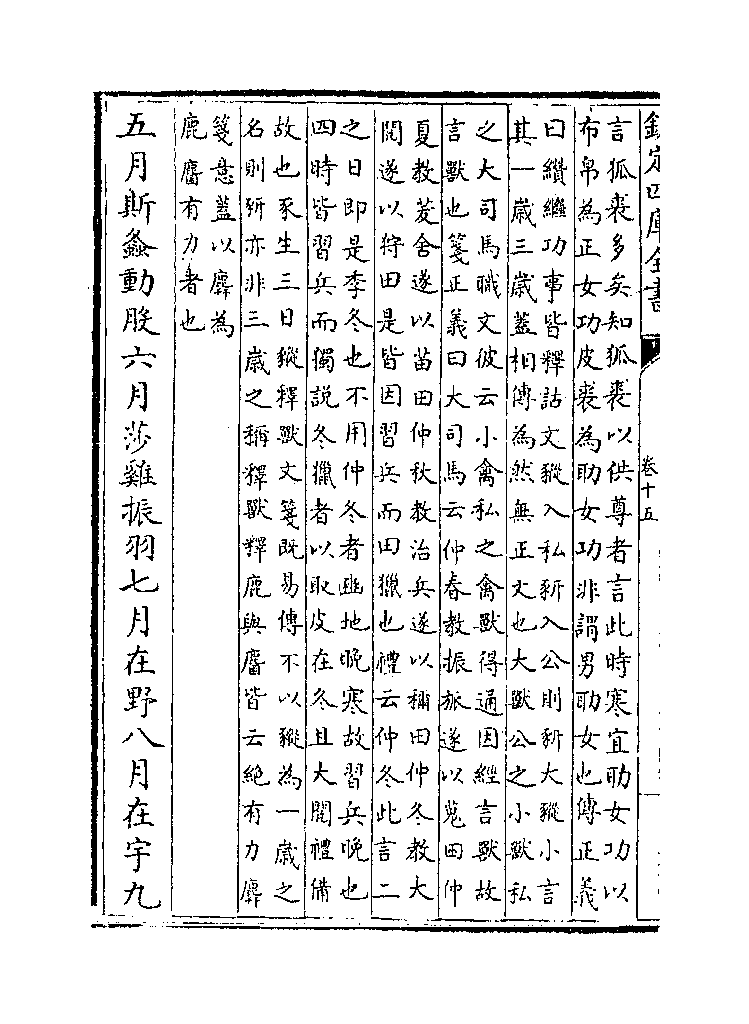 欽定四庫全書
卷十五
言狐裘多矣知狐裘以供尊者言此時寒宜助女功以
布帛為正女功皮裘為助女功非謂男助女也傳正義
曰纘繼功事皆釋詁文豵入私豜入公則豜大豵小言
其一歳三歳蓋相傳為然無正文也大獸公之小獸私
之大司馬職文彼云小禽私之禽獸得通因經言獸故
言獸也箋正義曰大司馬云仲春教振旅遂以蒐田仲
夏教茇舍遂以苗田仲秋教治兵遂以獮田仲冬教大
閱遂以狩田是皆因習兵而田獵也禮云仲冬此言二
之日即是季冬也不用仲冬者豳地晩寒故習兵晩也
四時皆習兵而獨説冬獵者以取皮在冬且大閱禮備
故也豕生三曰豵釋獸文箋既易傳不以豵為一歳之
名則豜亦非三歳之稱釋獸釋鹿與麕皆云絶有力麎
箋意蓋以麎為
鹿麕有力者也
五月斯螽動股六月莎雞振羽七月在野八月在宇九